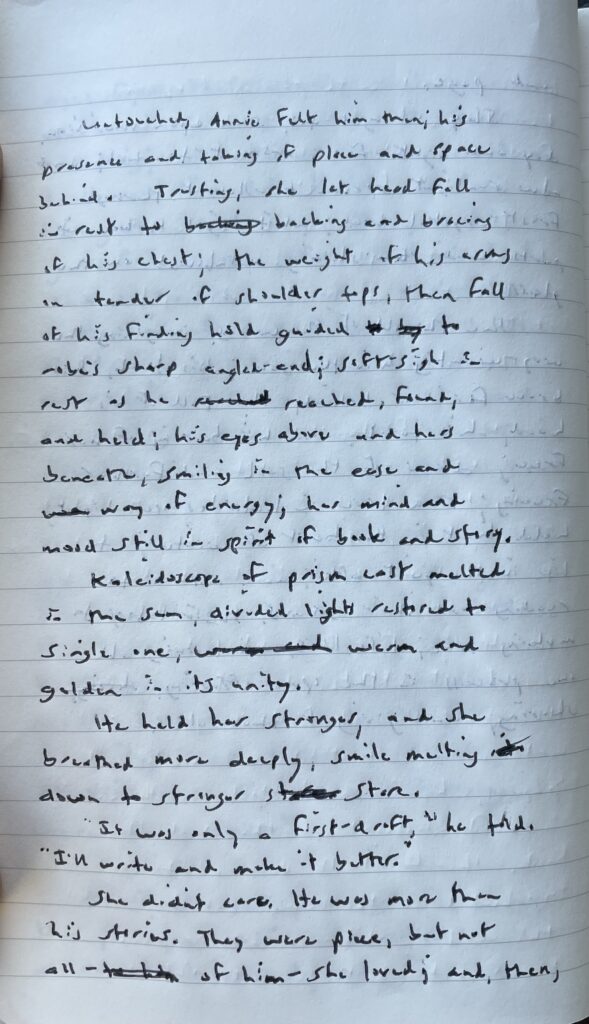 Untouched, Annie felt him then; his
presence and taking of place and space
behind. Trusting, she let head fall
in rest to backing backing and bracing
of his chest; the weight of his arms
in tender of shoulder tops, then fall
of his finding hold guided to by to
robe's sharp angled-end; soft-sigh in
rest as he reached reached, found,
and held; his eyes above and hers
beneath, smiling in the ease and
way of energy; her mind and
mood still in spirit of book and story.
Kaleidoscope of prism cast melted
in the sun, divided lights restored to
single one, warm and warm and
golden in its unity.
He held her stronger, and she
breathed more deeply, smile melting
down to stronger store.
"It was only a first-draft," he told.
"I'll write and make it better."
She didn't care. He was more than
his stories. They were piece, but not
all - to him of him - she loved; and, then,